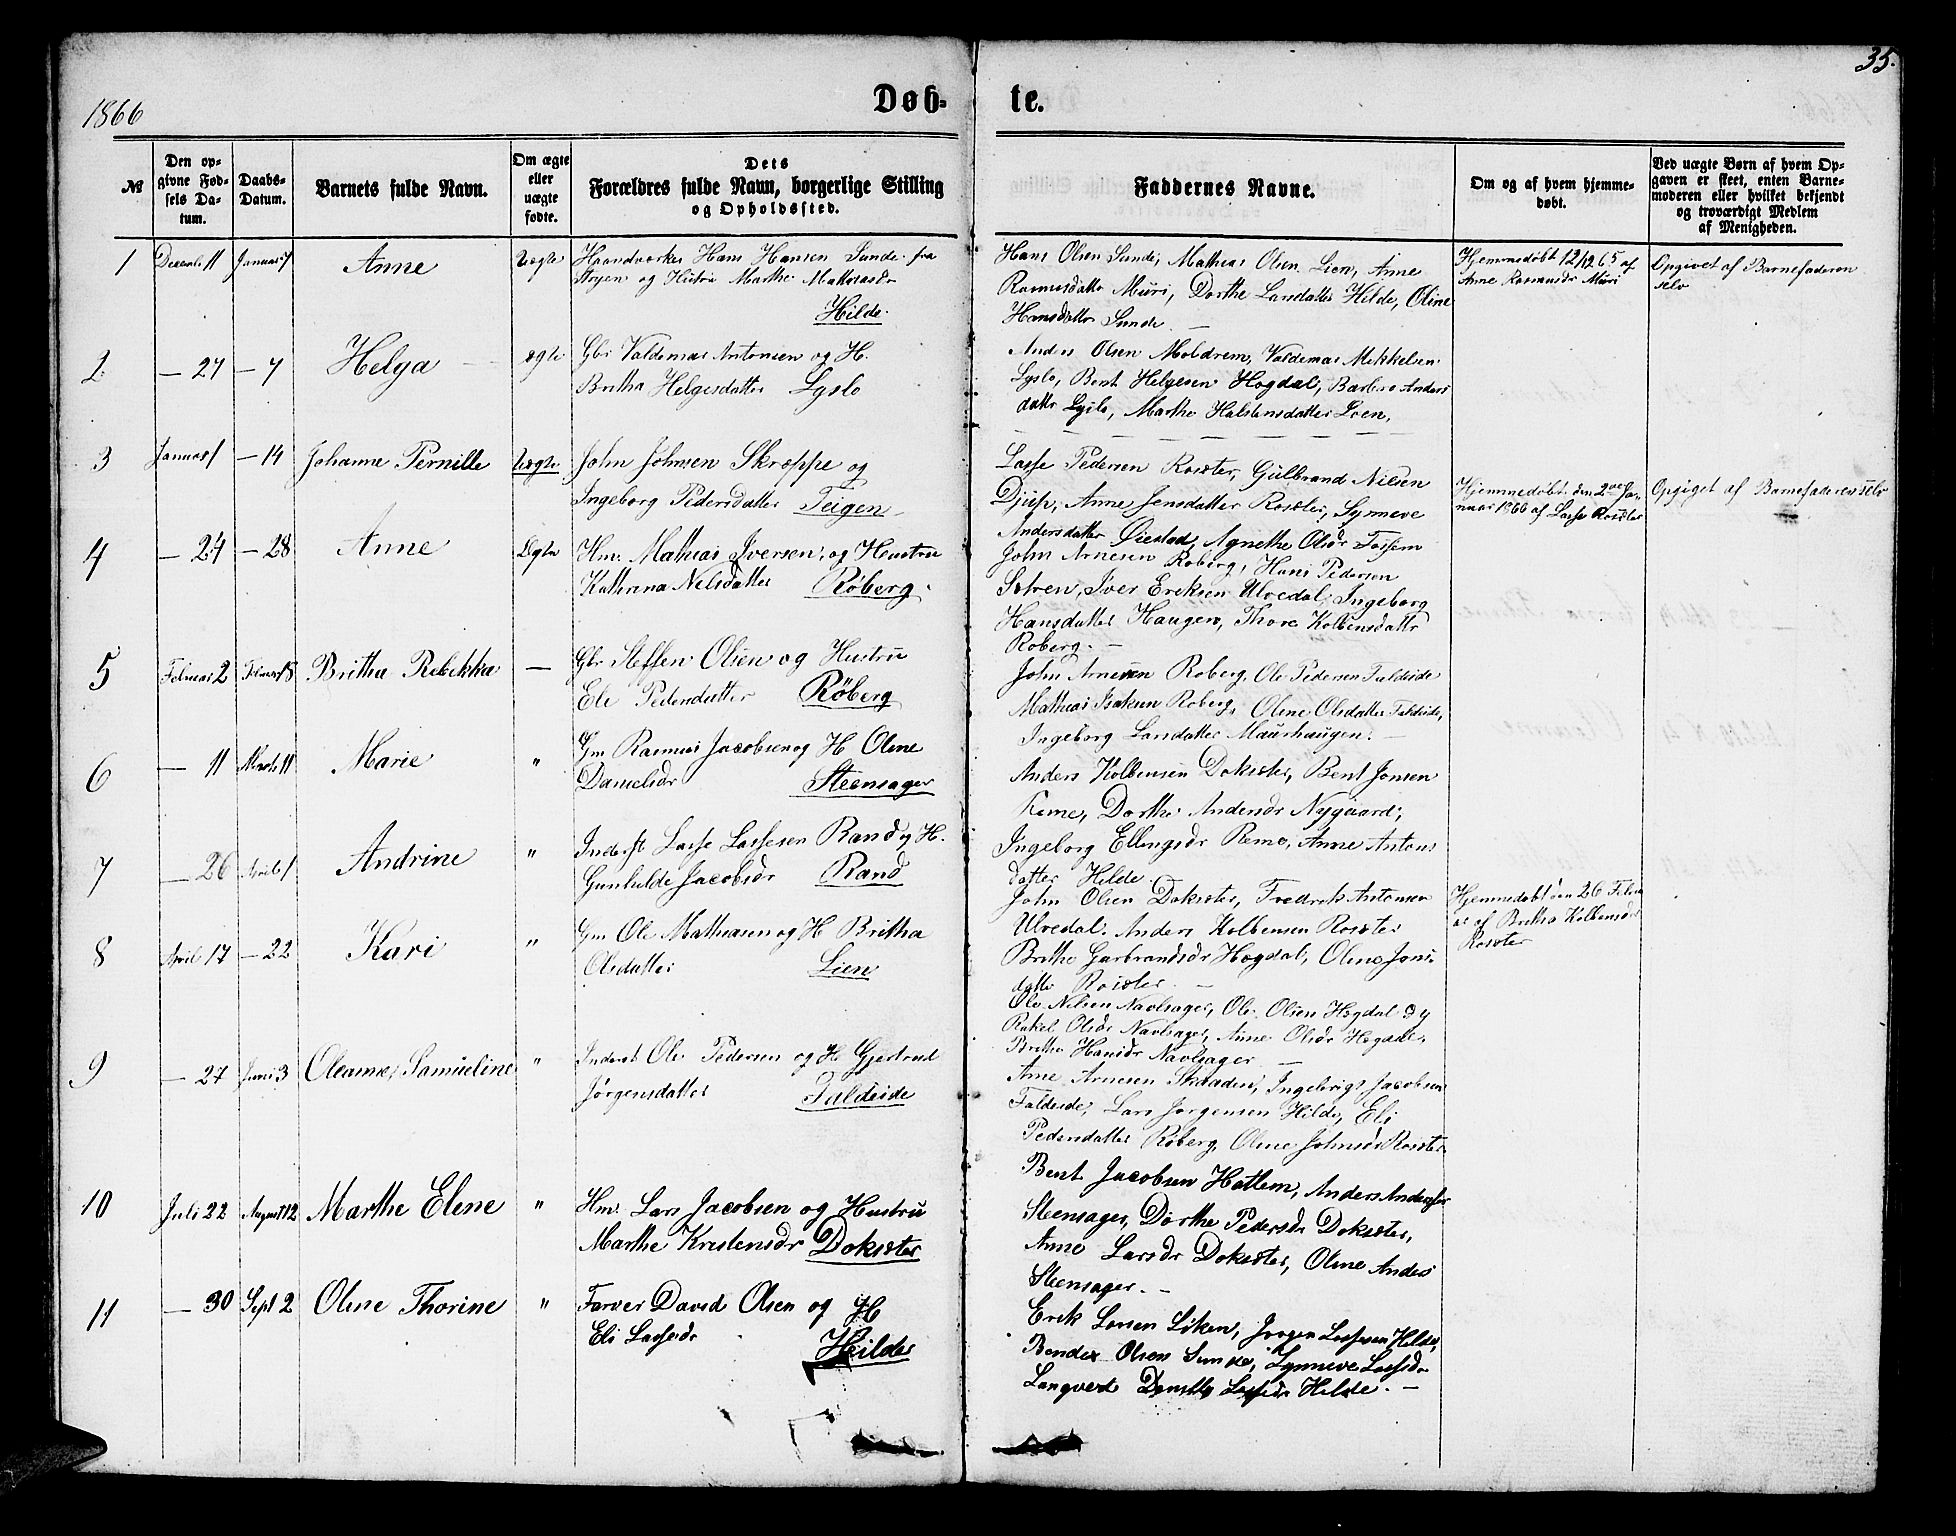 35.
1866
Døb-
te.
№
Den op-
givne Fød-
sels Da-
tum.
Daabs-
Datum.
Barnets fulde Navn.
Om ægte
eller
uægte
fødte.
Dets
Forældres fulde Navn, borgerlige Stilling
og Opholdssted.
Faddernes Navne.
Om og af hvem hjemme-
døbt.
Ved uægte Børn af hvem Op-
gaven er skeet, enten Barne-
moderen eller hvilket bekjendt
og troværdigt Medlem
af Menigheden.
1 Decemb. 11 Januar 7 Anne Uægte Haandværker Hans Hansen Sunde fra
Stryen og Hustru Marthe Mathiasdr
Hilde.
Hans Olsen Sunde, Mathias Olsen Lien, Anne
Rasmusdatter Muri, Dorthe Larsdatter Hilde, Oline
Hansdatter Sunde. —
Hjemmedøbt 12/12 65 af
Anne Rasmusdr Muri
Opgivet af Barnefaderen
selv
2. — 27 — 7 Helga ægte Gbr Valdemar Antonsen og H.
Britha Helgesdatter Lyslo
Anders Olsen Moldrem, Valdemar Mikkelsen
Lyslo, Bent Helgesen Hogdal, Barbro Anders
datter Lyslo, Marthe Halstensdatter Loen,
3 Januar 1 — 14 Johanne Pernille Uægte John Johnsen Skroppe og
Ingeborg Pedersdatter Teigen
Lasse Pedersen Roset, Gulbrand Nilsen
Djupe, Anne Jensdatter Roset, Synneve
Andersdatter Øiestad, Agnethe Olsdr Tossem
Hjemmedøbt den 2den Ja-
nuar 1866 af Lasse Roset
Opgivet af Barnefaderen selv
4 — 24 — 28 Anne Ægte Hm. Mathias Iversen, og Hustru
Kathrina Nelsdatter Røberg.
John Arnesen Roberg, Hans Pedersen
Sølren, Iver Eriksen Ulvedal, Ingeborg
Hansdatter Haugen, Thore Kolbensdatter
Roberg. —
5 Februar 2 Februar 18 Britha Rebekka — Gbr Steffen Olsen og Hustru
Eli Pedersdatter Røberg
John Arnesen Roberg, Ole Pedersen Faldeide
Mathias Isaksen Roberg, Oline Olsdatter Faldeide,
Ingeborg Larsdatter Maurhaugen. —
6 — 11 Marts 11 Marie " Gm Rasmus Jacobsen og H Oline
Danielsdr Steensager
Anders Kolbensen Dokset, Bent Jonsen
Reme, Dorthe Andersdr Nygaard,
Ingeborg Ellingsdr Remo, Anne Antons
datter Hilde.
7 — 26 April 1 Andrine " Inderst Lasse Lassesen Rand og H.
Gunhilde Jacobsdr Rand
John Olsen Dokset, Fredrik Antonsen
Ulvedal. Anders Kolbensen Roset
Brithe Garbrandsdr Hogdal, Oline Jons-
datter Roset. —
Hjemmedøbt den 26 Febru
ar af Britha Kolbensdr
Roset
8 April 17 — 22 Kari " Gm Ole Mathiasen og H Britha
Olsdatter Lien
Ole Nilsen Navlsager, Ole Olsen Hogdal og
Rakel Olsdr Navlsager, Anne Olsdr Hogdal,
Brithe Hansdr Navlsager —
9 — 27 Juni 3 Oleanne Samueline " Inderst Ole Pedersen og H Gjertrud
Jørgensdatter Faldeide
Arne Arnesen Skaaden, Ingebrigt Jacobsen
Faldeide, Lars Jørgensen Hilde, Eli
Pedersdatter Røberg, Oline Johnsdr Roset
10 Juli 22 August 12 Marthe Elene " Hm. Lars Jacobsen og Hustru
Marthe Kristensdr Dokset
Bent Jacobsen Hatlem, Anders Andersen
Steensager, Dorthe Pedersdr Dokset,
Anne Larsdr Dokset, Oline Anders
Steensager. —
11 — 30 Sept 2 Oline Thorine " Farver David Olsen og H
Eli Lassesdr Hilde
Erik Larsen Liken, Jørgen Lassesen Hilde,
Bendix Olsen Sunde, Synneve Lassesdr
Langvert Dorthe Lassesdr Hilde. —